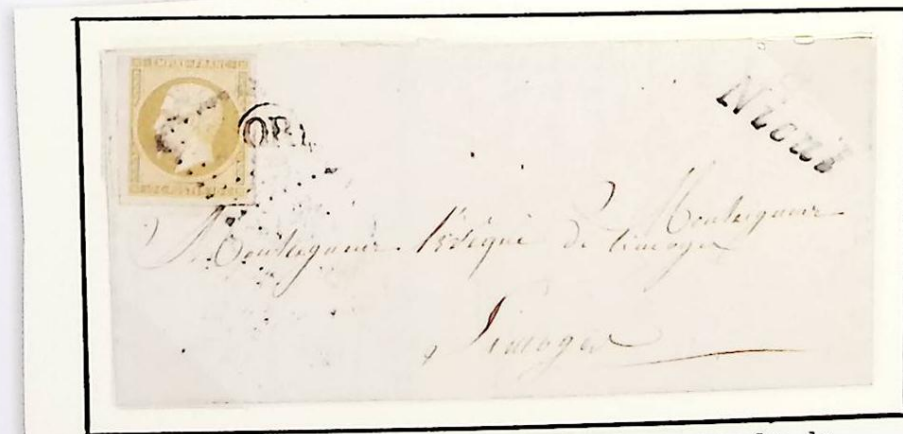 EMPIRE FRANC
OR
Nieul
Monseigneur
Monseigneur l'évêque de Limoges
Limoges